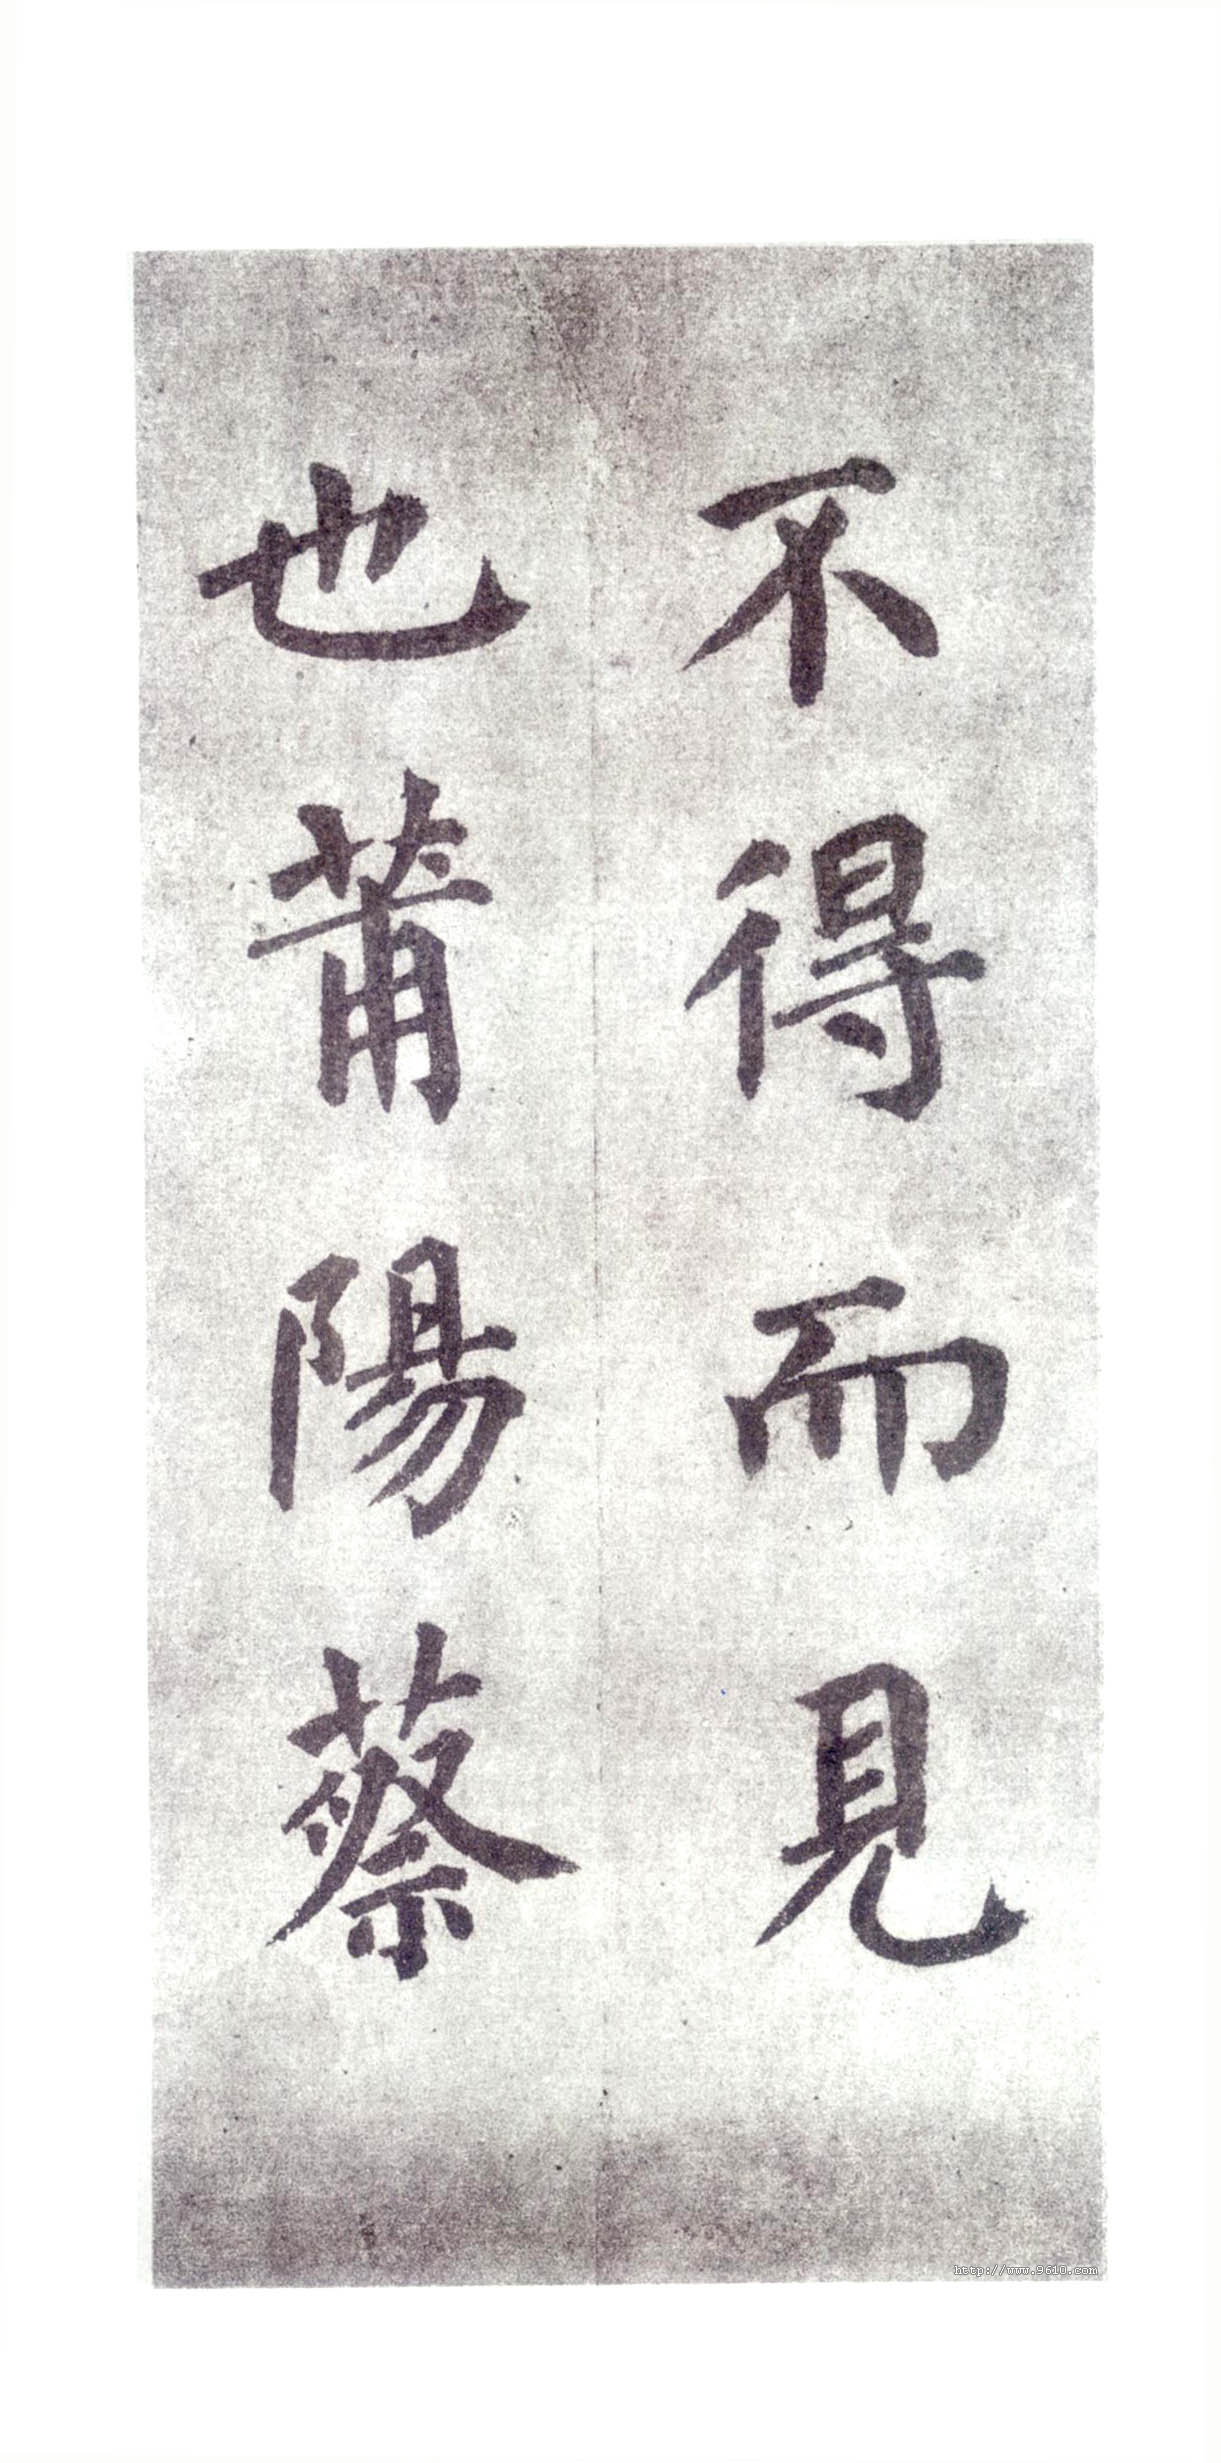 不得而見
也莆陽蔡
http://www.9610.com